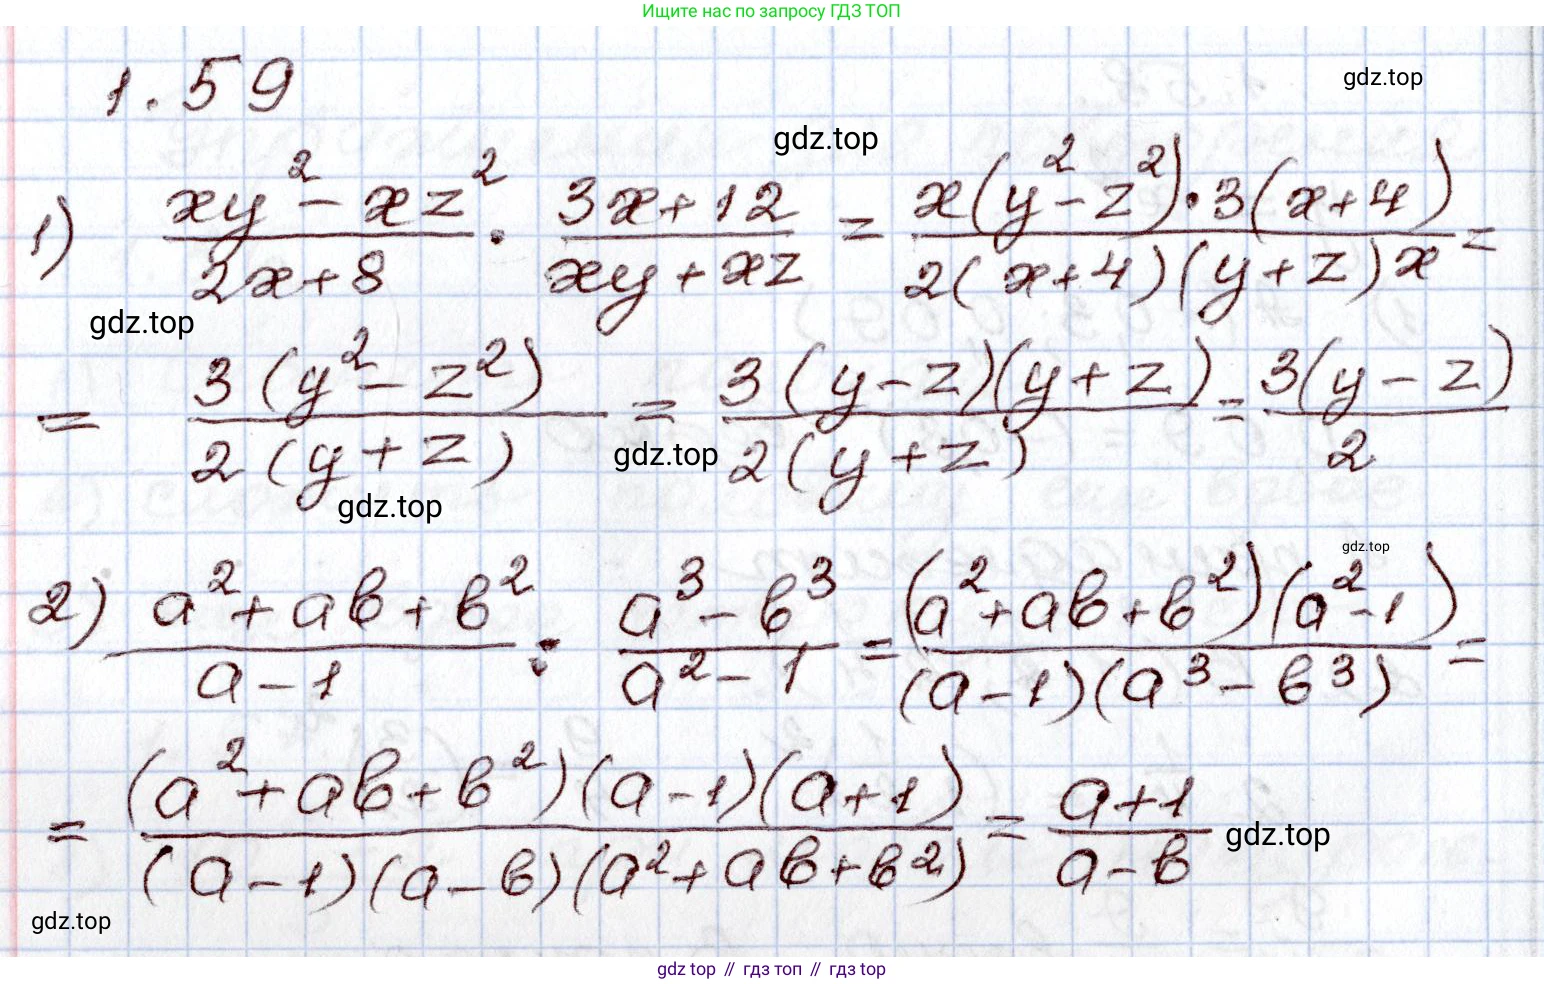 Ищите нас по запросу ГДЗ ТОП
1.59
gdz.top
gdz.top
1) (xy² - xz²)/(2x+8) · (3x+12)/(xy+xz) = (x(y²-z²)·3(x+4))/(2(x+4)(y+z)x) =
gdz.top
= (3(y²-z²))/(2(y+z)) = (3(y-z)(y+z))/(2(y+z)) = (3(y-z))/2
gdz.top
gdz.top
gdz.top
2) (a²+ab+b²)/(a-1) : (a³-b³)/(a²-1) = ((a²+ab+b²)(a²-1))/((a-1)(a³-b³)) =
= ((a²+ab+b²)(a-1)(a+1))/((a-1)(a-b)(a²+ab+b²)) = (a+1)/(a-b)
gdz.top
gdz.top
gdz top // гдз топ // gdz top